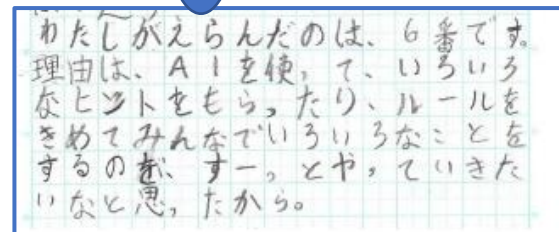 わたしがえらんだのは、6番です。
理由は、AIを使って、いろいろ
なヒントをもらったり、ルールを
きめてみんなでいろいろなことを
するのを、すーっとやっていきた
いなと思ったから。